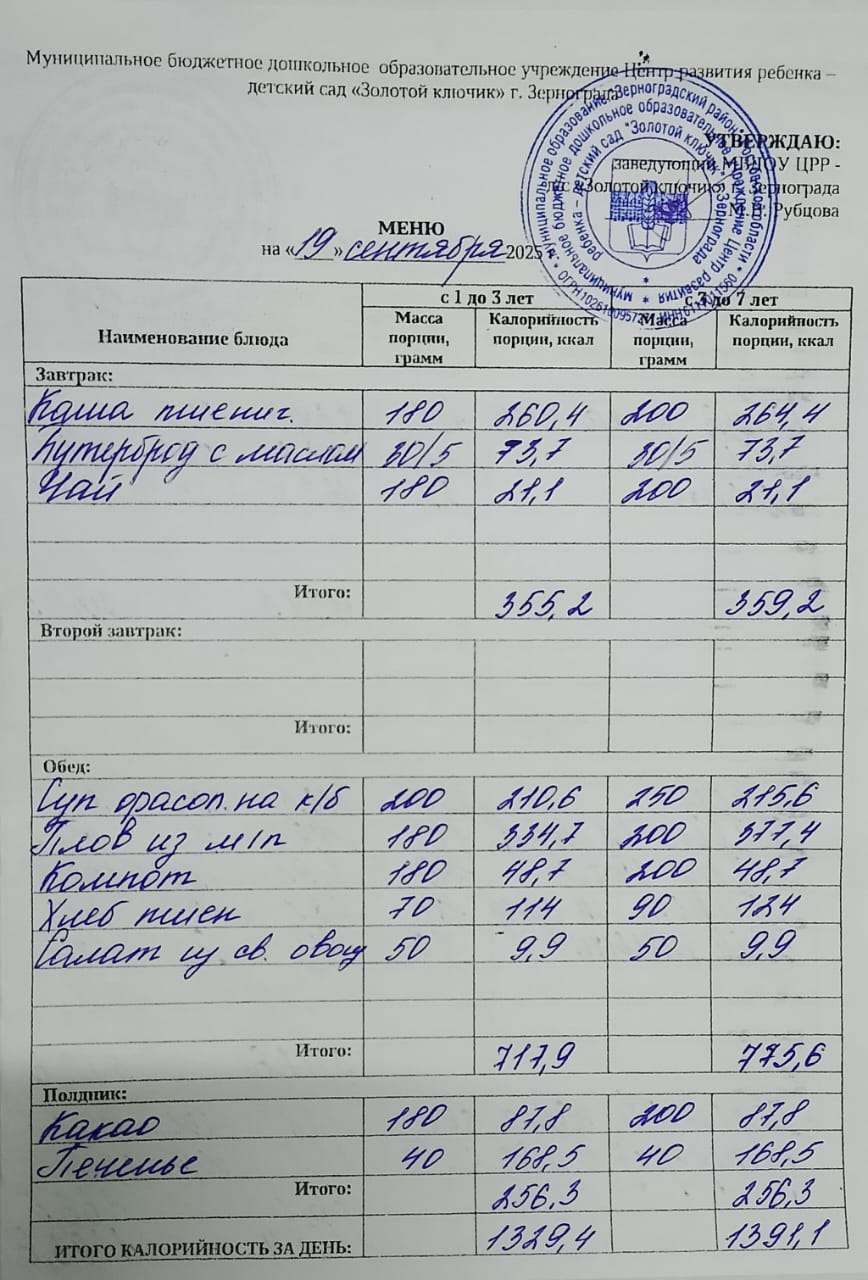 Муниципальное бюджетное дошкольное образовательное учреждение Центр развития ребенка –
детский сад «Золотой ключик» г. Зернограда
УТВЕРЖДАЮ:
заведующий МБДОУ ЦРР -
д/с «Золотой ключик» г. Зернограда
М.В. Рубцова
МЕНЮ
на «19» сентября 2025 г.
Наименование блюда с 1 до 3 лет с 3 до 7 лет
Масса порции, грамм Калорийность порции, ккал Масса порции, грамм Калорийность порции, ккал
Завтрак:
Каша пшенич. 180 260,4 200 264,4
Бутерброд с маслом 30/5 73,7 30/5 73,7
Чай 180 21,1 200 21,1
Итого: 355,2 359,2
Второй завтрак:
Итого:
Обед:
Суп фасол. на к/б 200 210,6 250 215,6
Плов из м/п 180 334,7 200 377,4
Компот 180 48,7 200 48,7
Хлеб пшен 70 114 90 124
Салат из св. овощ 50 9,9 50 9,9
Итого: 717,9 775,6
Полдник:
Какао 180 87,8 200 87,8
Печенье 40 168,5 40 168,5
Итого: 256,3 256,3
ИТОГО КАЛОРИЙНОСТЬ ЗА ДЕНЬ: 1329,4 1391,1